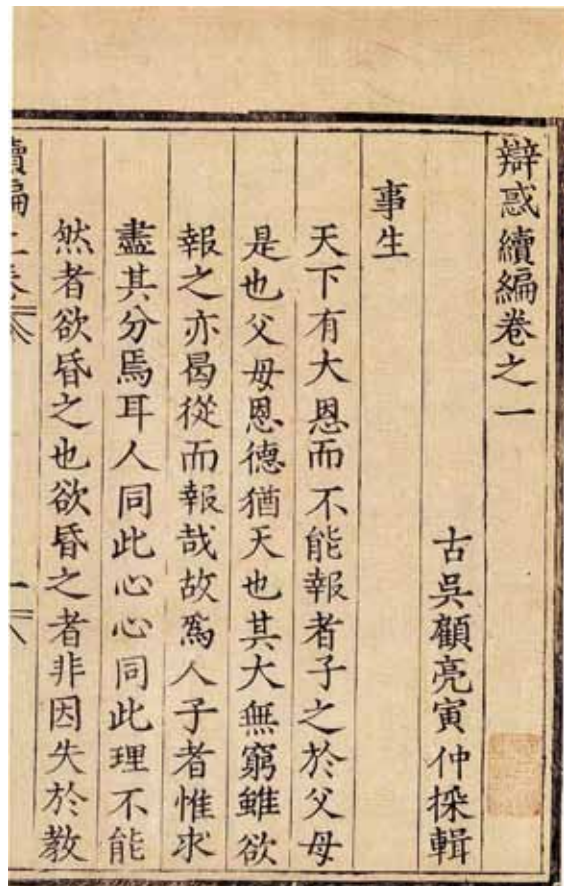 辯惑續編卷之一
古吳顧亮寅仲採輯
事生
天下有大恩而不能報者子之於父母
是也父母恩德猶天也其大無窮雖欲
報之亦曷從而報哉故爲人子者惟求
盡其分焉耳人同此心心同此理不能
然者欲昏之也欲昏之者非因失於教
續編一卷
一